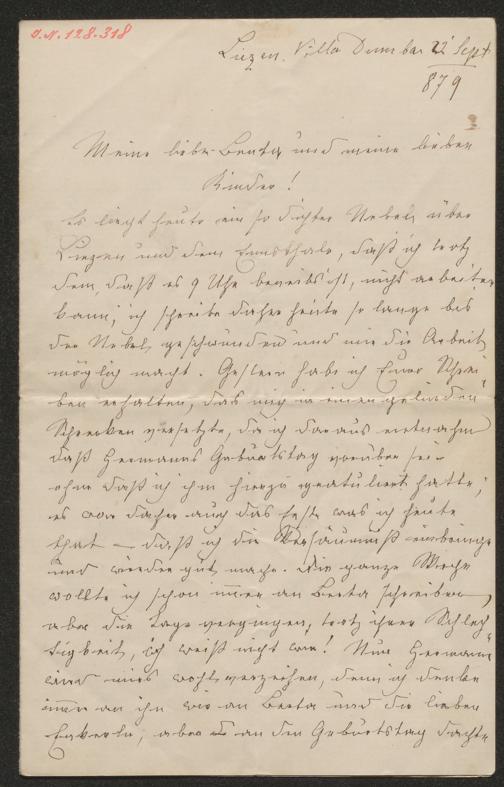 I.N. 128.318
Liezen. Villa Dumba 22 Sept
879
Meine liebe Berta und meine lieben
Kinder!
Es liegt heute ein so dichter Nebel über
Liezen und dem Ennsthale, daß ich trotz
dem, daß es 9 Uhr bereits ist, nicht arbeiten
kann; ich schreibe daher heute so lange bis
der Nebel geschwunden und mir die Arbeit
möglich macht. Gestern habe ich Euer Schrei
ben erhalten, das mich in einen gelinden
Schrecken versetzte, da ich daraus entnahm
daß Hermanns Geburtstag vorüber sei
ohne daß ich ihm hierzu gratuliert hatte;
es war daher auch das Erste was ich heute
that – daß ich die Versäumniß einbringe
und wieder gut mache. Die ganze Woche
wollte ich schon immer an Berta schreiben,
aber die Tage vergingen, trotz ihrer Schlech
tigkeit, ich weiß nicht wie! Nun Hermann
wird mirs wohl verzeihen, denn ich denke
immer an ihn wie an Berta und die lieben
Enkerln, aber an den Geburtstag dachte